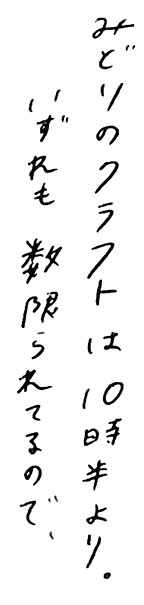 みどりのクラフトは10時半より。
いずれも数限られてるので、